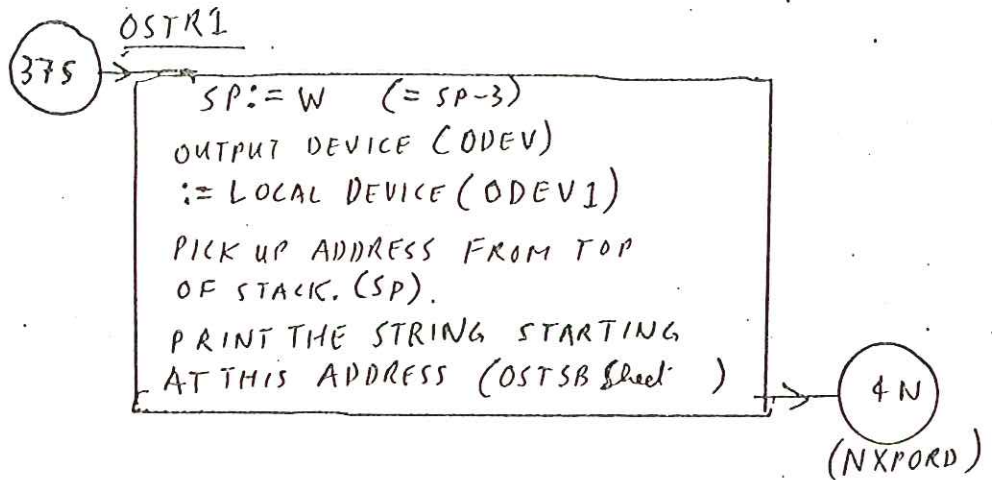 OSTR1
375
SP:= W (= SP-3)
OUTPUT DEVICE (ODEV)
:= LOCAL DEVICE (ODEV1)
PICK UP ADDRESS FROM TOP
OF STACK. (SP).
PRINT THE STRING STARTING
AT THIS ADDRESS (OSTSB Sheet )
4N
(NXPORD)